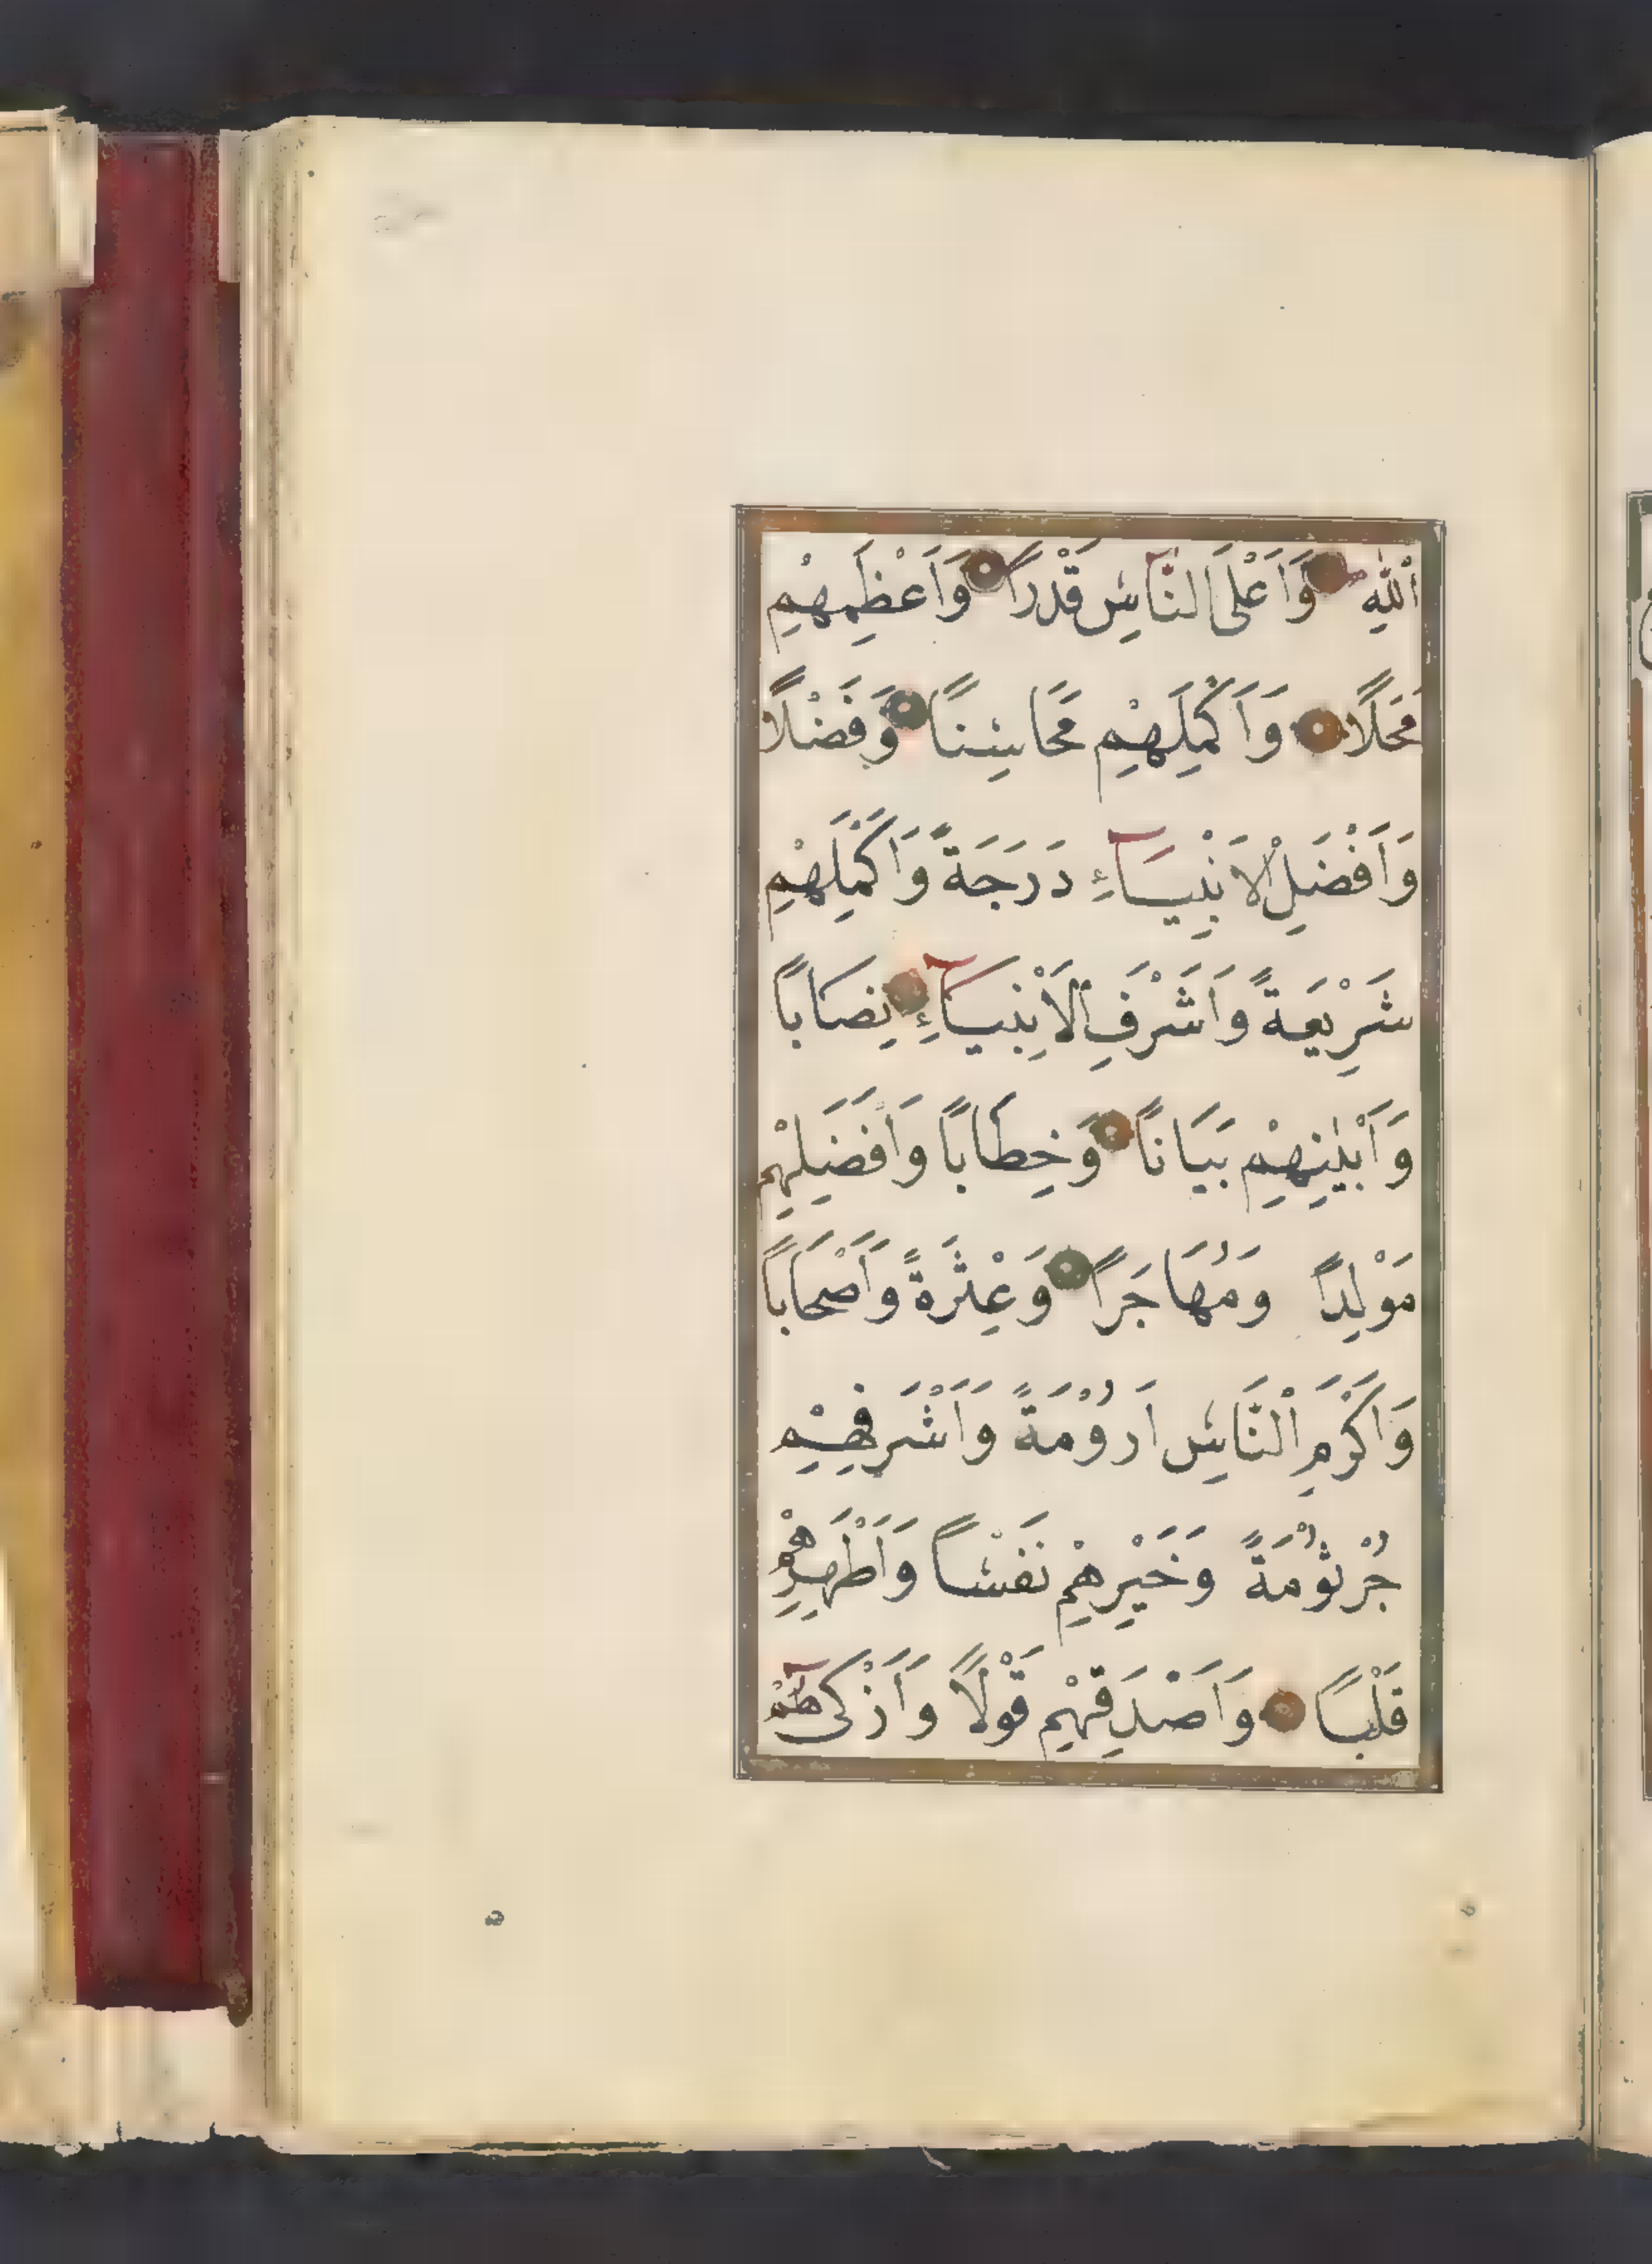 اَللّٰهِ وَاَعْلَى النَّاسِ قَدْرًا وَاَعْظَمِهِمْ
مَحَلًّا وَاَكْمَلِهِمْ مَحَاسِنًا وَفَضْلًا
وَاَفْضَلِ الْاَنْبِيَآءِ دَرَجَةً وَاَكْمَلِهِمْ
شَرِيْعَةً وَاَشْرَفِ الْاَنْبِيَآءِ نِصَابًا
وَاَبْيَنِهِمْ بَيَانًا وَخِطَابًا وَاَفْضَلِهِمْ
مَوْلِدًا وَمُهَاجَرًا وَعِتْرَةً وَاَصْحَابًا
وَاَكْرَمِ النَّاسِ اَرُوْمَةً وَاَشْرَفِهِمْ
جُرْثُوْمَةً وَخَيْرِهِمْ نَفْسًا وَاَطْهَرِهِمْ
قَلْبًا وَاَصْدَقِهِمْ قَوْلًا وَاَزْكٰى